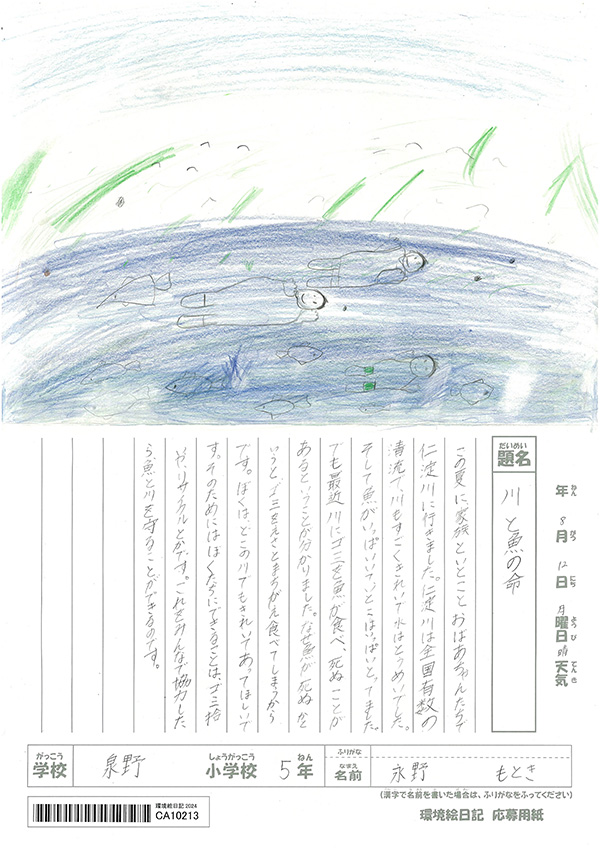 だいめい
題名
川と魚の命
年 ねん 8 月 がつ 12 日 にち 月 曜日 ようび 晴 天気 てんき
この夏に家族といとことおばあちゃんたちで
仁淀川に行きました。仁淀川は全国有数の
清流で川もすごくきれいで水はとうめいでした。
そして魚がいっぱいいて、いとこはいっぱいとってました。
でも最近川にゴミを魚が食べ、死ぬことが
あるということが分かりました。なぜ魚が死ぬかと
いうと、ゴミをえさとまちがえ食べてしまうから
です。ぼくは、どこの川でもきれいであってほしいで
す。そのためにはぼくたちにできることは、ゴミ拾
いや、リサイクルとかです。これをみんなで協力した
ら魚と川を守ることができるのです。
がっこう 学校 泉野 しょうがっこう 小学校 5 ねん 年 ふりがな なまえ 名前 永野 もとき
(漢字で名前を書いた場合は、ふりがなをふってください)
環境絵日記 2024
CA10213
環境絵日記 応募用紙